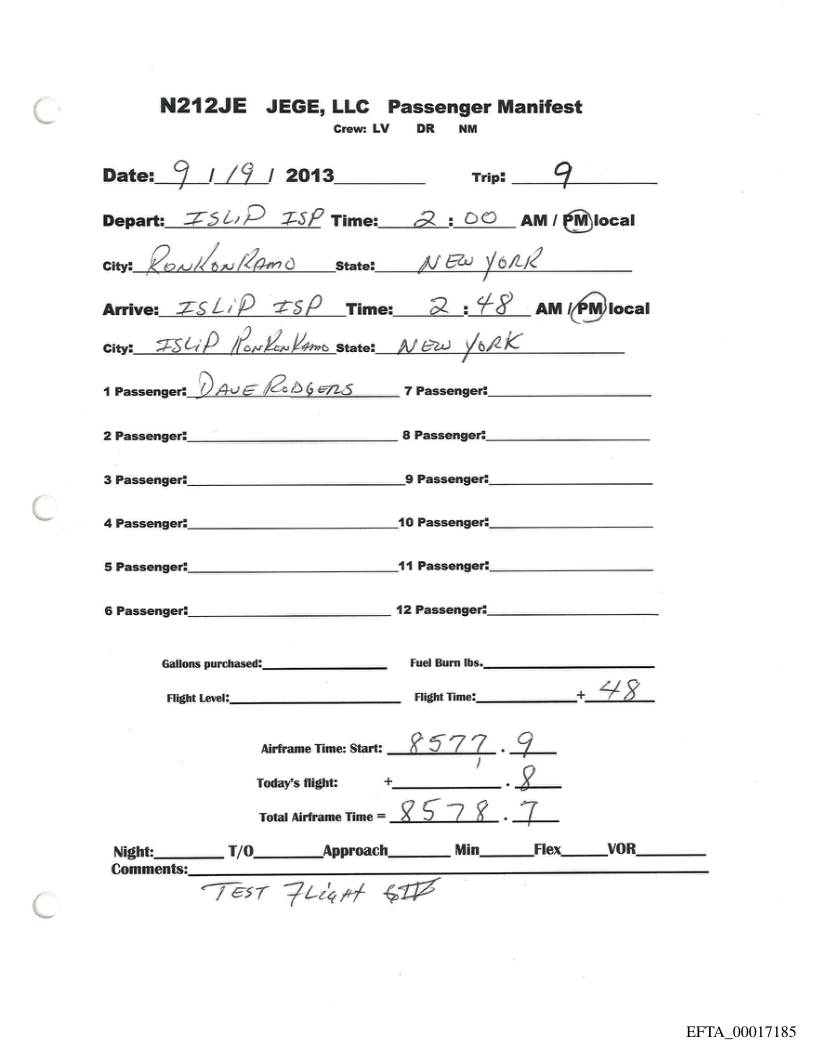 N212JE JEGE, LLC Passenger Manifest
Crew: LV DR NM
Date: 9 / 19 / 2013 Trip: 9
Depart: ISLIP ISP Time: 2 : 00 AM / PM local
City: RONKONKAMO State: NEW YORK
Arrive: ISLIP ISP Time: 2 : 48 AM / PM local
City: ISLIP RONKONKAMO State: NEW YORK
1 Passenger: DAVE RODGERS 7 Passenger:
2 Passenger: 8 Passenger:
3 Passenger: 9 Passenger:
4 Passenger: 10 Passenger:
5 Passenger: 11 Passenger:
6 Passenger: 12 Passenger:
Gallons purchased: Fuel Burn lbs.
Flight Level: Flight Time: + 48
Airframe Time: Start: 8577 . 9
Today's flight: + . 8
Total Airframe Time = 8578 . 7
Night: T/O Approach Min Flex VOR
Comments:
TEST FLigHt GIV
EFTA_00017185